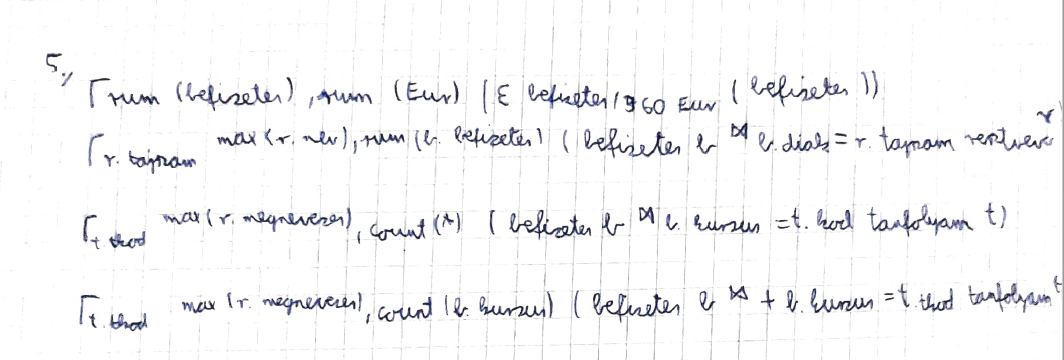 5.,
Γ sum (befizetes), sum (Eur) (ε befizetes/360 Eur (befizetes))
Γ r. tajszam max (r. nev), sum (b. befizetes) (befizetes b ⋈ b. diak = r. tajszam resztvevo r
Γ t. tkod max (r. megnevezes), count (*) (befizetes b ⋈ b. kurzus = t. kod tanfolyam t)
Γ t. tkod max (r. megnevezes), count (b. kurzus) (befizetes b ⋈ + b. kurzus = t. tkod tanfolyam t